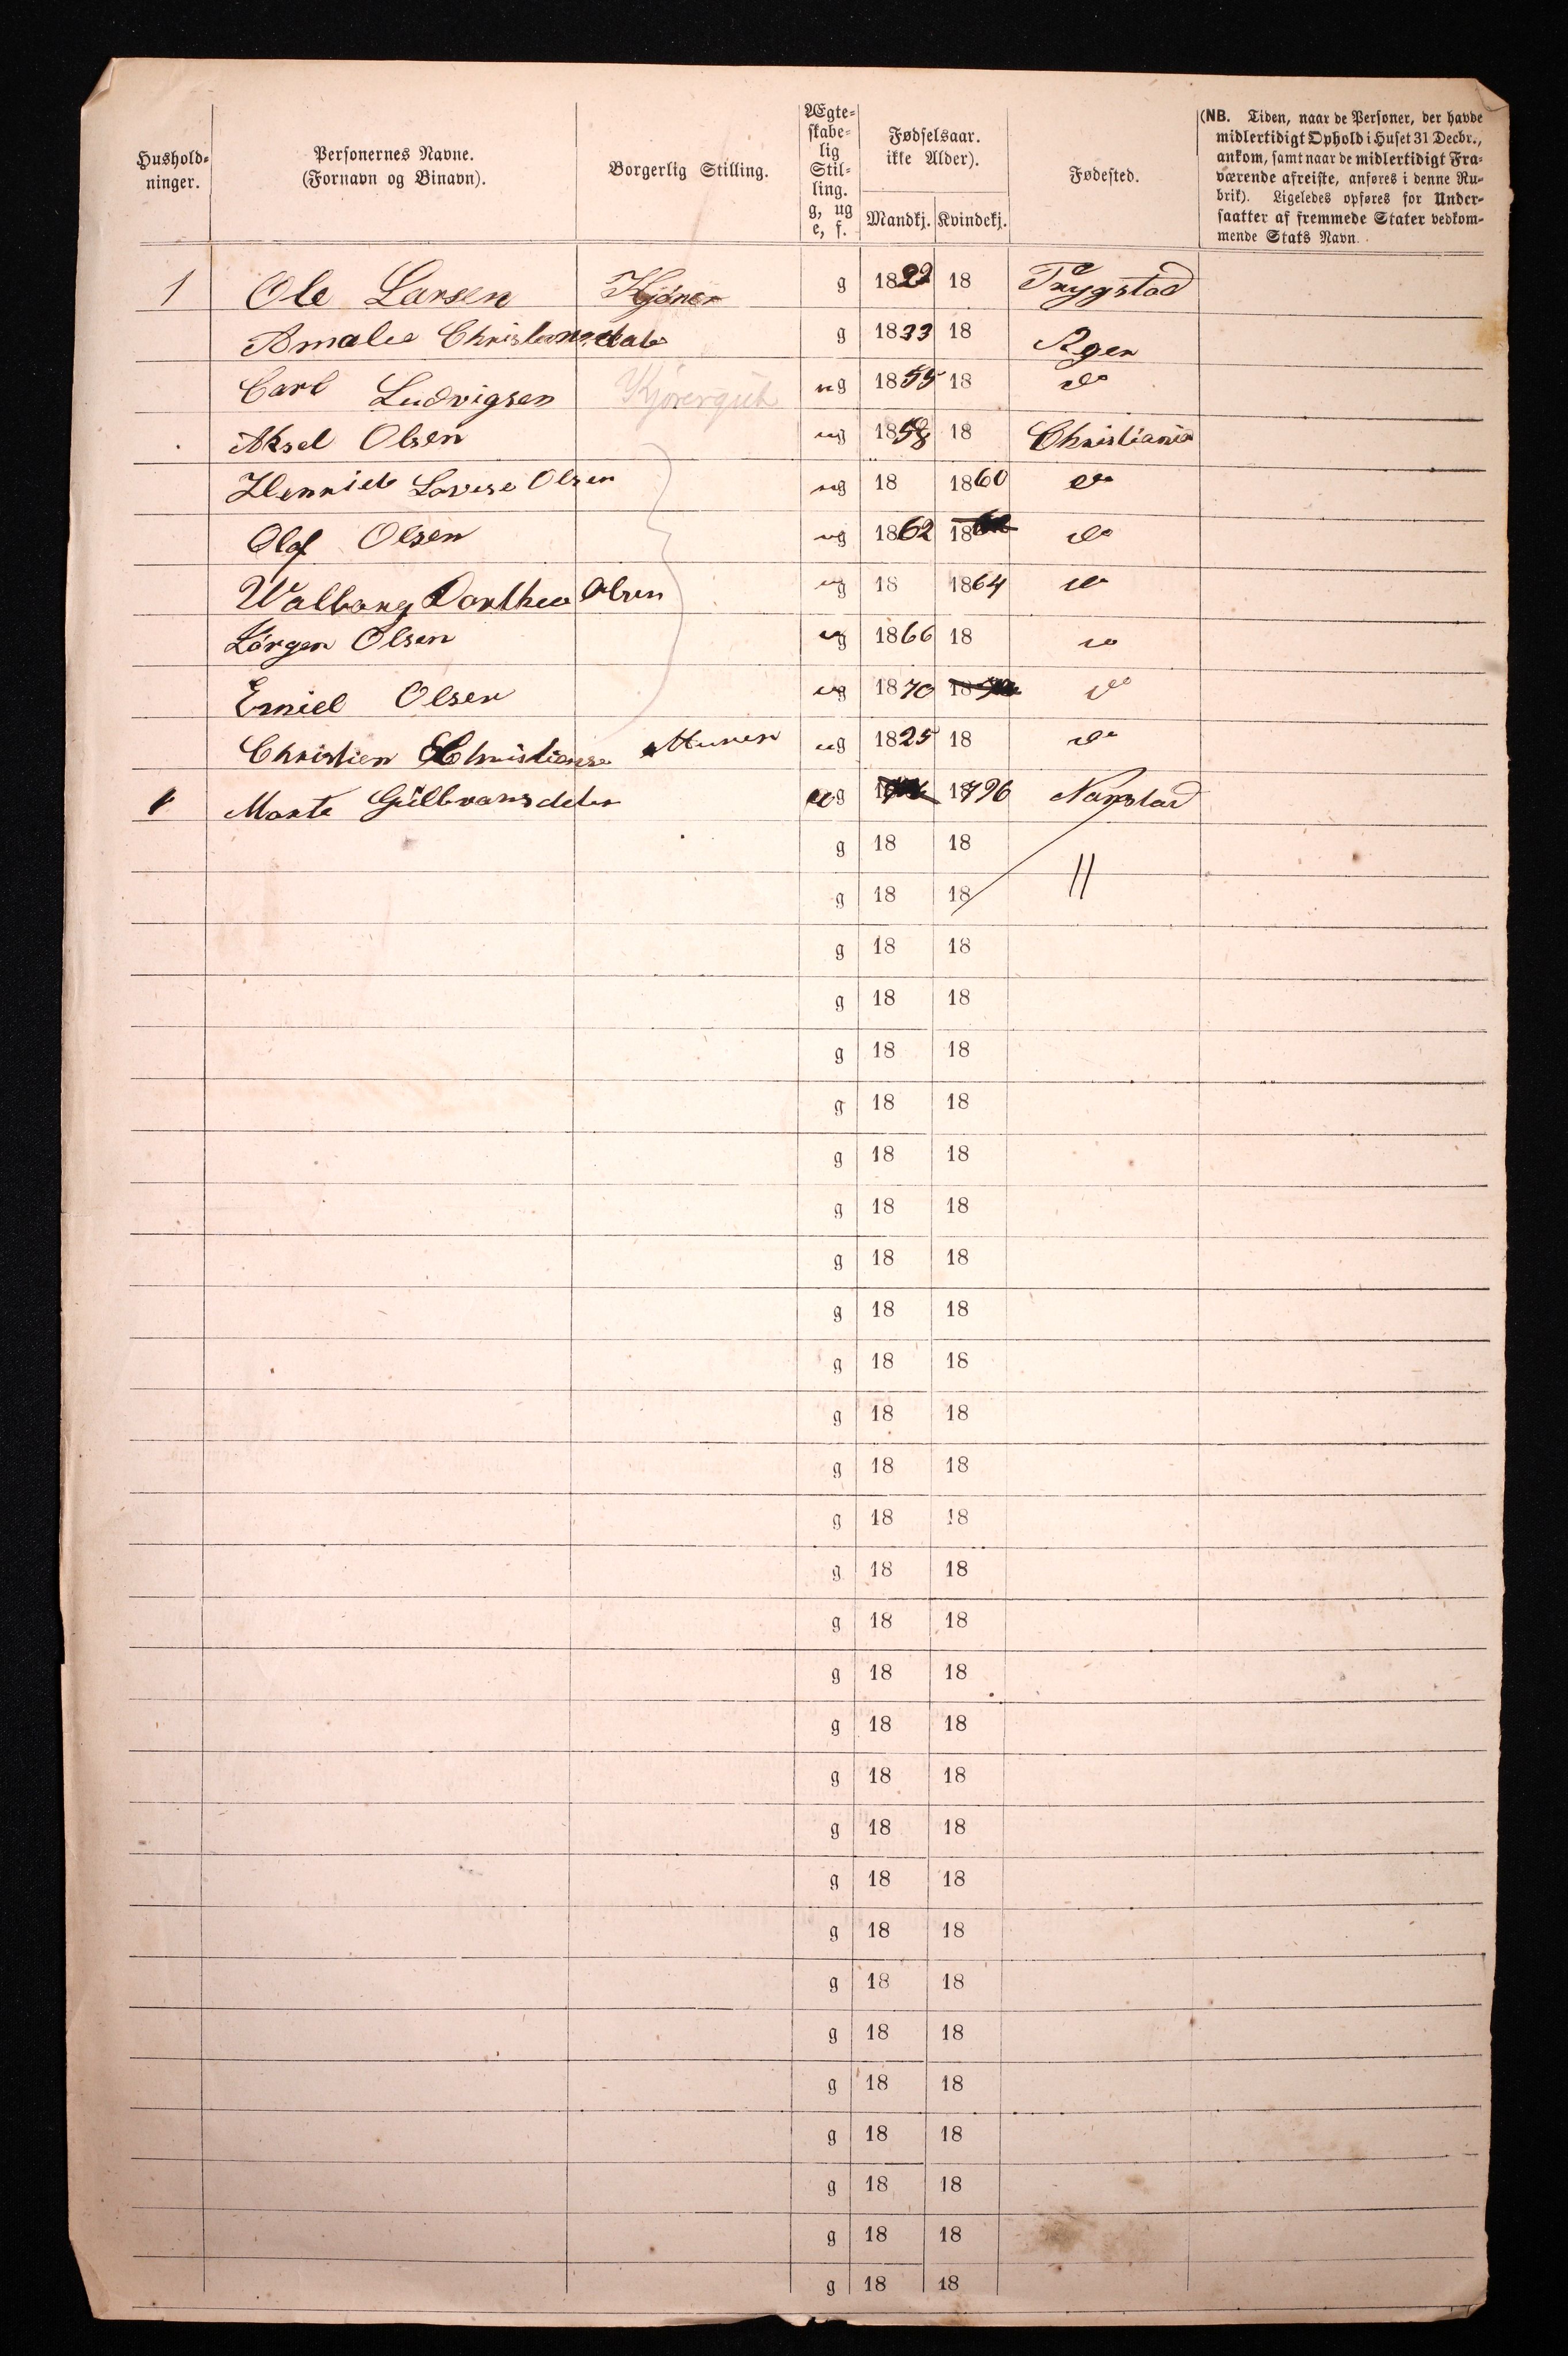 Hushold-
ninger.
Personernes Navne.
(Fornavn og Binavn).
Borgerlig Stilling.
Ægte-
skabe-
lig
Stil-
ling.
g, ug
e, f.
Fødselsaar.
ikke Alder).
Mandkj. Kvindekj.
Fødested.
(NB. Tiden, naar de Personer, der havde
midlertidigt Ophold i Huset 31 Decbr.,
ankom, samt naar de midlertidigt Fra-
værende afreiste, anføres i denne Ru-
brik). Ligeledes opføres for Under-
saatter af fremmede Stater vedkom-
mende Stats Navn.
1 Ole Larsen Kjører g 1822 18 Trygstad
Amalie g 1833 18 Ager
Carl Ludvigsen Kjøregut ug 1855 18 do
Aksel Olsen ug 1858 18 Christiania
Henriete Lovise Olsen ug 18 1860 do
Olaf Olsen ug 1862 18 do
Walborg Dorthea Olsen ug 18 1864 do
Jörgen Olsen ug 1866 18 do
Emiel Olsen ug 1870 18 do
Christien Christiansen Murer ug 1825 18 do
1 Marte Gulbransdeter ug 1796
g 18 18
g 18 18 11
g 18 18
g 18 18
g 18 18
g 18 18
g 18 18
g 18 18
g 18 18
g 18 18
g 18 18
g 18 18
g 18 18
g 18 18
g 18 18
g 18 18
g 18 18
g 18 18
g 18 18
g 18 18
g 18 18
g 18 18
g 18 18
g 18 18
g 18 18
g 18 18
g 18 18
g 18 18
g 18 18